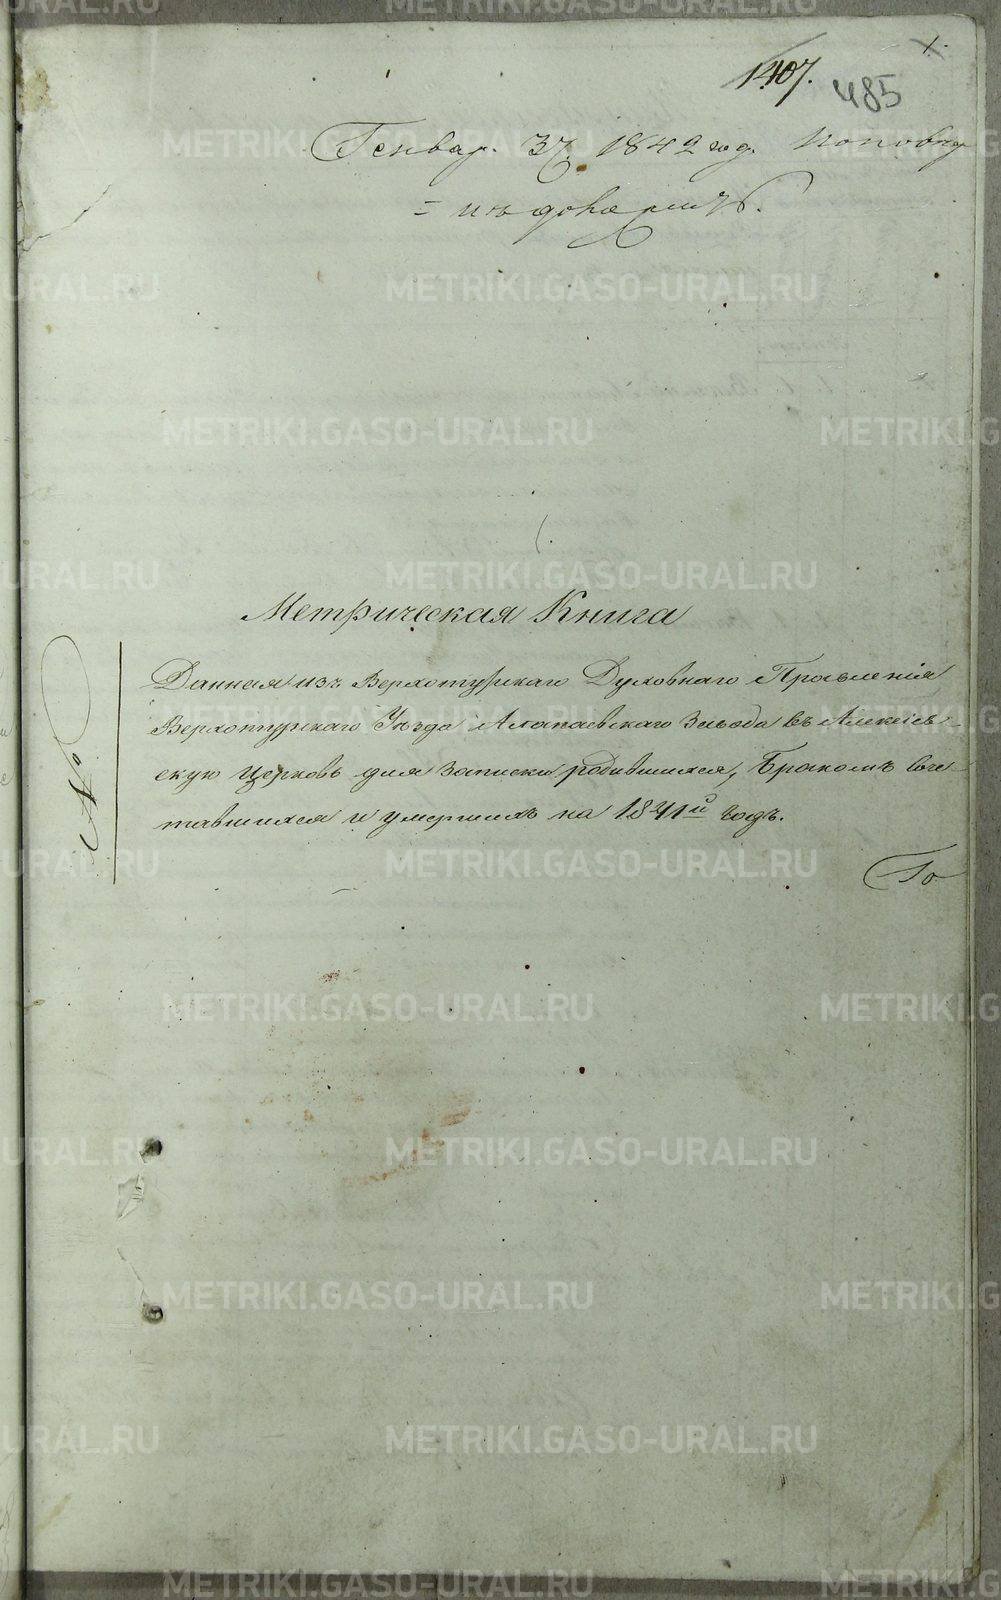 1.
1407.
485
Генвар. 3 1842 год.
Метрическая Книга
Данная изъ Верхотурскаго Духовнаго Правленія
Верхотурскаго Уезда Алапаевскаго Завода въ Алексіев-
скую Церковь для Записки родившихся, Бракомъ соче-
тавшихся и умершихъ на 1841й Годъ.
№
METRIKI.GASO-URAL.RU